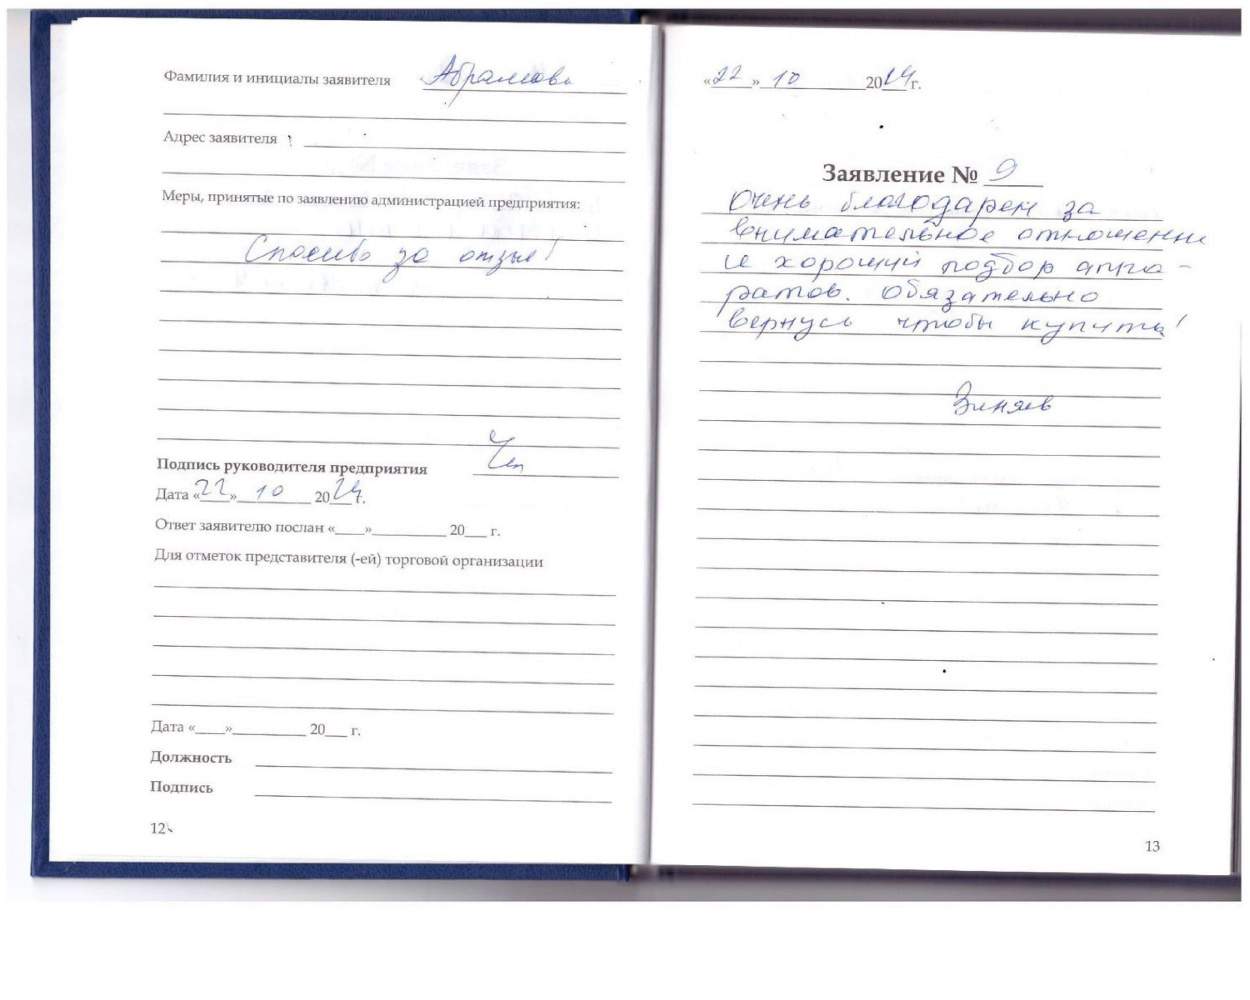 Фамилия и инициалы заявителя Абрамова
Адрес заявителя
Меры, принятые по заявлению администрацией предприятия:
Спасибо за отзыв!
Подпись руководителя предприятия
Дата «22» 10 2024 г.
Ответ заявителю послан «____»__________ 20___ г.
Для отметок представителя (-ей) торговой организации
Дата «____»__________ 20___ г.
Должность
Подпись
12
«22» 10 2024 г.
Заявление № 9
Очень благодарен за
внимательное отношение
и хороший подбор аппа-
ратов. Обязательно
вернусь чтобы купить!
Зиняев
13